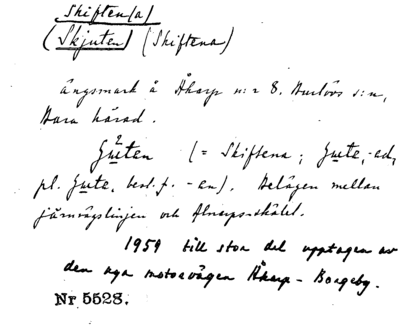 Skiften(a)
(Skjuten) (Skiftena)
ängsmark å Åkarp n:r 8. Burlövs s:n,
Bara härad.
(= Skiftena;
pl. best. f. -en). Belägen mellan
järnvägslinjen och Alnarps-skälet.
1959 till stor del upptagen av
den nya motorvägen Åkarp - Borgeby.
Nr 5528.